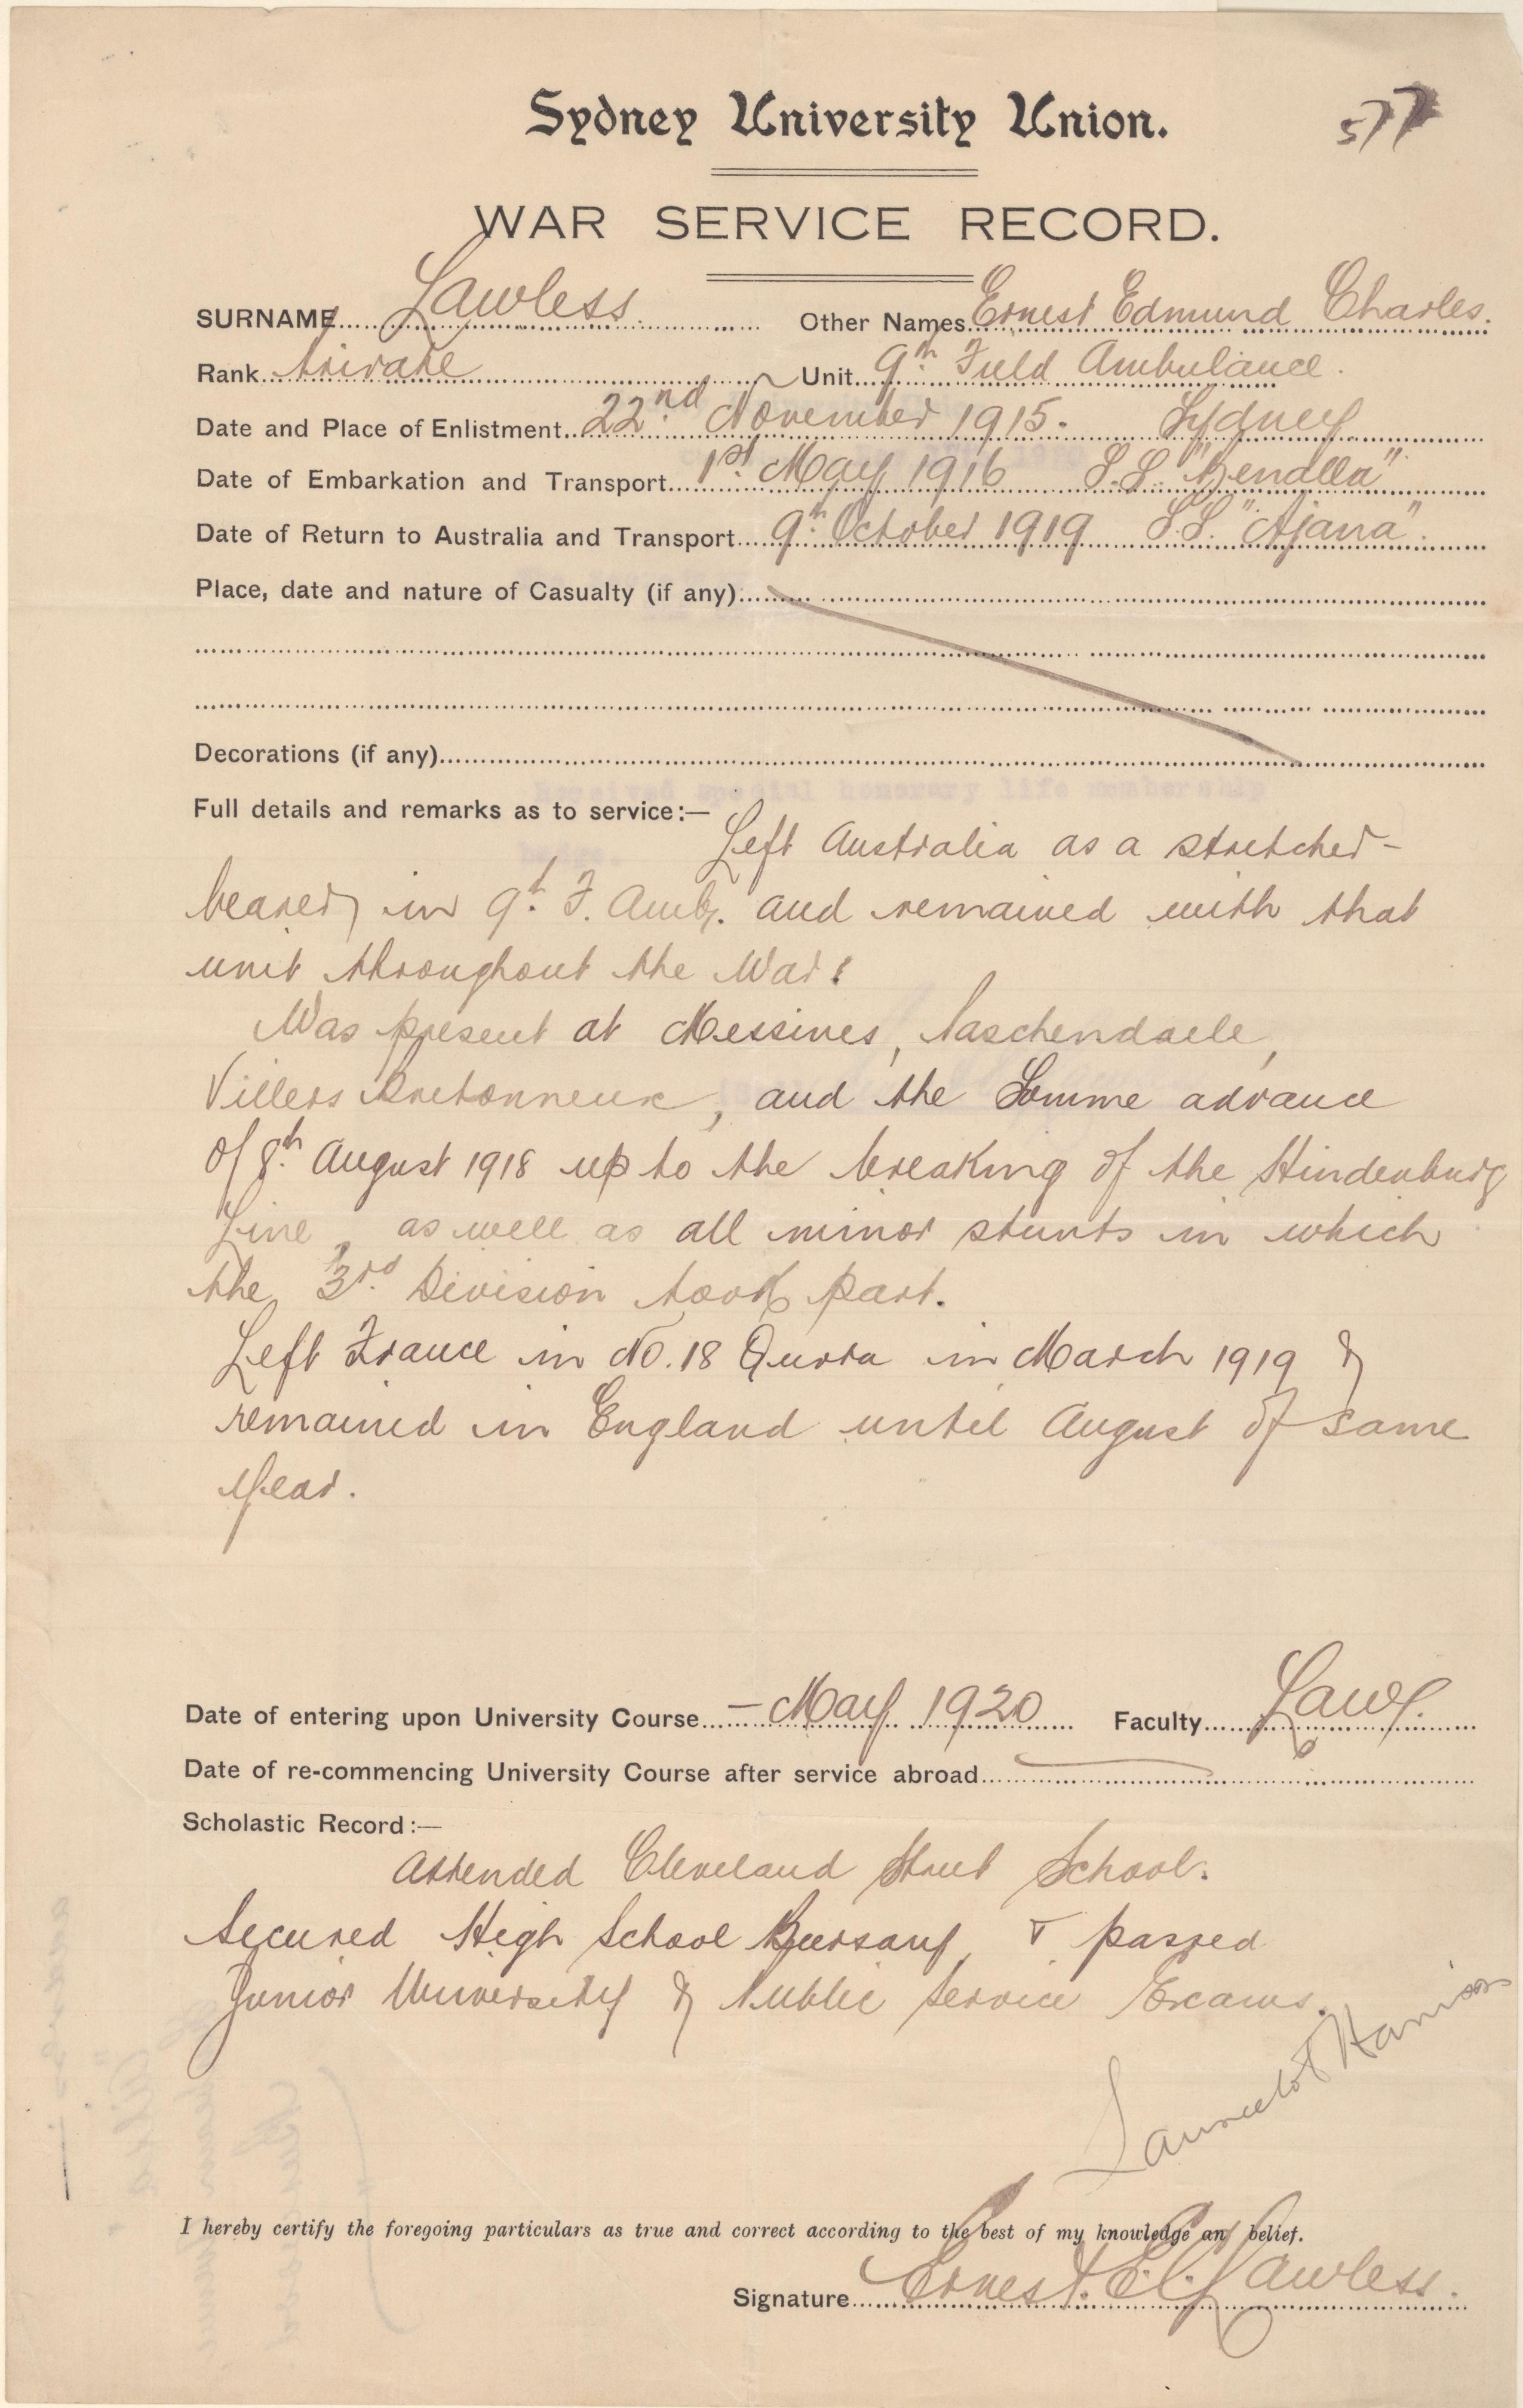 Sydney University Union.
577
WAR SERVICE RECORD.
SURNAME Lawless. Other Names Ernest Edmund Charles.
Rank Private Unit 9th Field Ambulance.
Date and Place of Enlistment 22nd November 1915. Sydney
Date of Embarkation and Transport 1st May 1916 S.S. "Benalla"
Date of Return to Australia and Transport 9th October 1919 S.S. "Ajana".
Place, date and nature of Casualty (if any):
Decorations (if any)
Full details and remarks as to service:—
Left Australia as a stretcher-
bearer in 9th F. Amb. and remained with that
unit throughout the War.
Was present at Messines, Paschendaele,
Villers Bretonneux, and the Somme advance
of 8th August 1918 up to the breaking of the Hindenburg
Line, as well as all minor stunts in which
the 3rd Division took part.
Left France in No. 18 Quota in March 1919 &
remained in England until August of same
year.
Date of entering upon University Course — May 1920 Faculty Law.
Date of re-commencing University Course after service abroad
Scholastic Record:—
Attended Cleveland Street School.
Secured High School Bursary, & passed
Junior University & Public Service Exams.
Launcelot Harrison
I hereby certify the foregoing particulars as true and correct according to the best of my knowledge an belief.
Signature Ernest. E.C. Lawless.